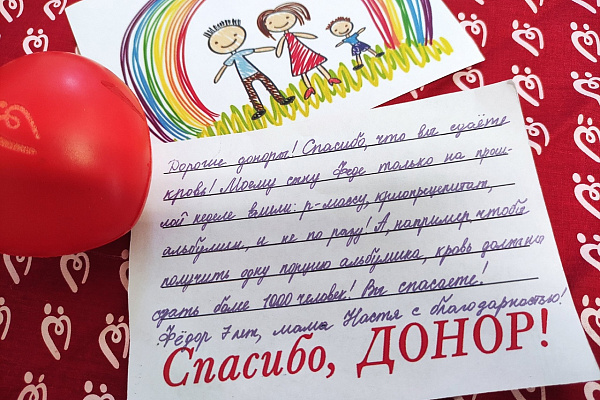 Дорогие доноры! Спасибо, что вы сдаёте
кровь! Моему сыну Феде только на прош-
лой неделе влили: р-массу, криопреципитат,
альбумин, и не по разу! А, например чтобы
получить одну порцию альбумина, кровь должны
сдать более 1000 человек! Вы спасаете!
Фёдор 7 лет, мама Настя с благодарностью!
Спасибо, ДОНОР!